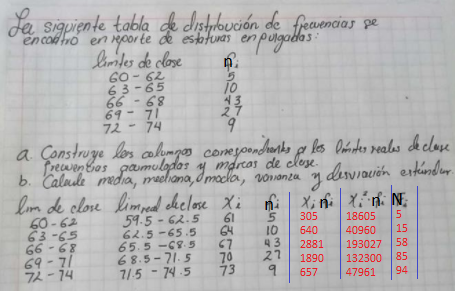 La siguiente tabla de distribución de frecuencias se
encontro en reporte de estaturas en pulgadas:
limites de clase ni
60 - 62 5
63 - 65 10
66 - 68 43
69 - 71 27
72 - 74 9
a. Construye las columnas correspondientes a los límites reales de clase
frecuencias acumuladas y marcas de clase.
b. Calcule media, mediana, moda, varianza y desviación estándar
Lim de clase lim real de clase Xi ni Xi ni Xi².ni Ni
60-62 59.5 - 62.5 61 5 305 18605 5
63-65 62.5 - 65.5 64 10 640 40960 15
66-68 65.5 - 68.5 67 43 2881 193027 58
69-71 68.5 - 71.5 70 27 1890 132300 85
72-74 71.5 - 74.5 73 9 657 47961 94